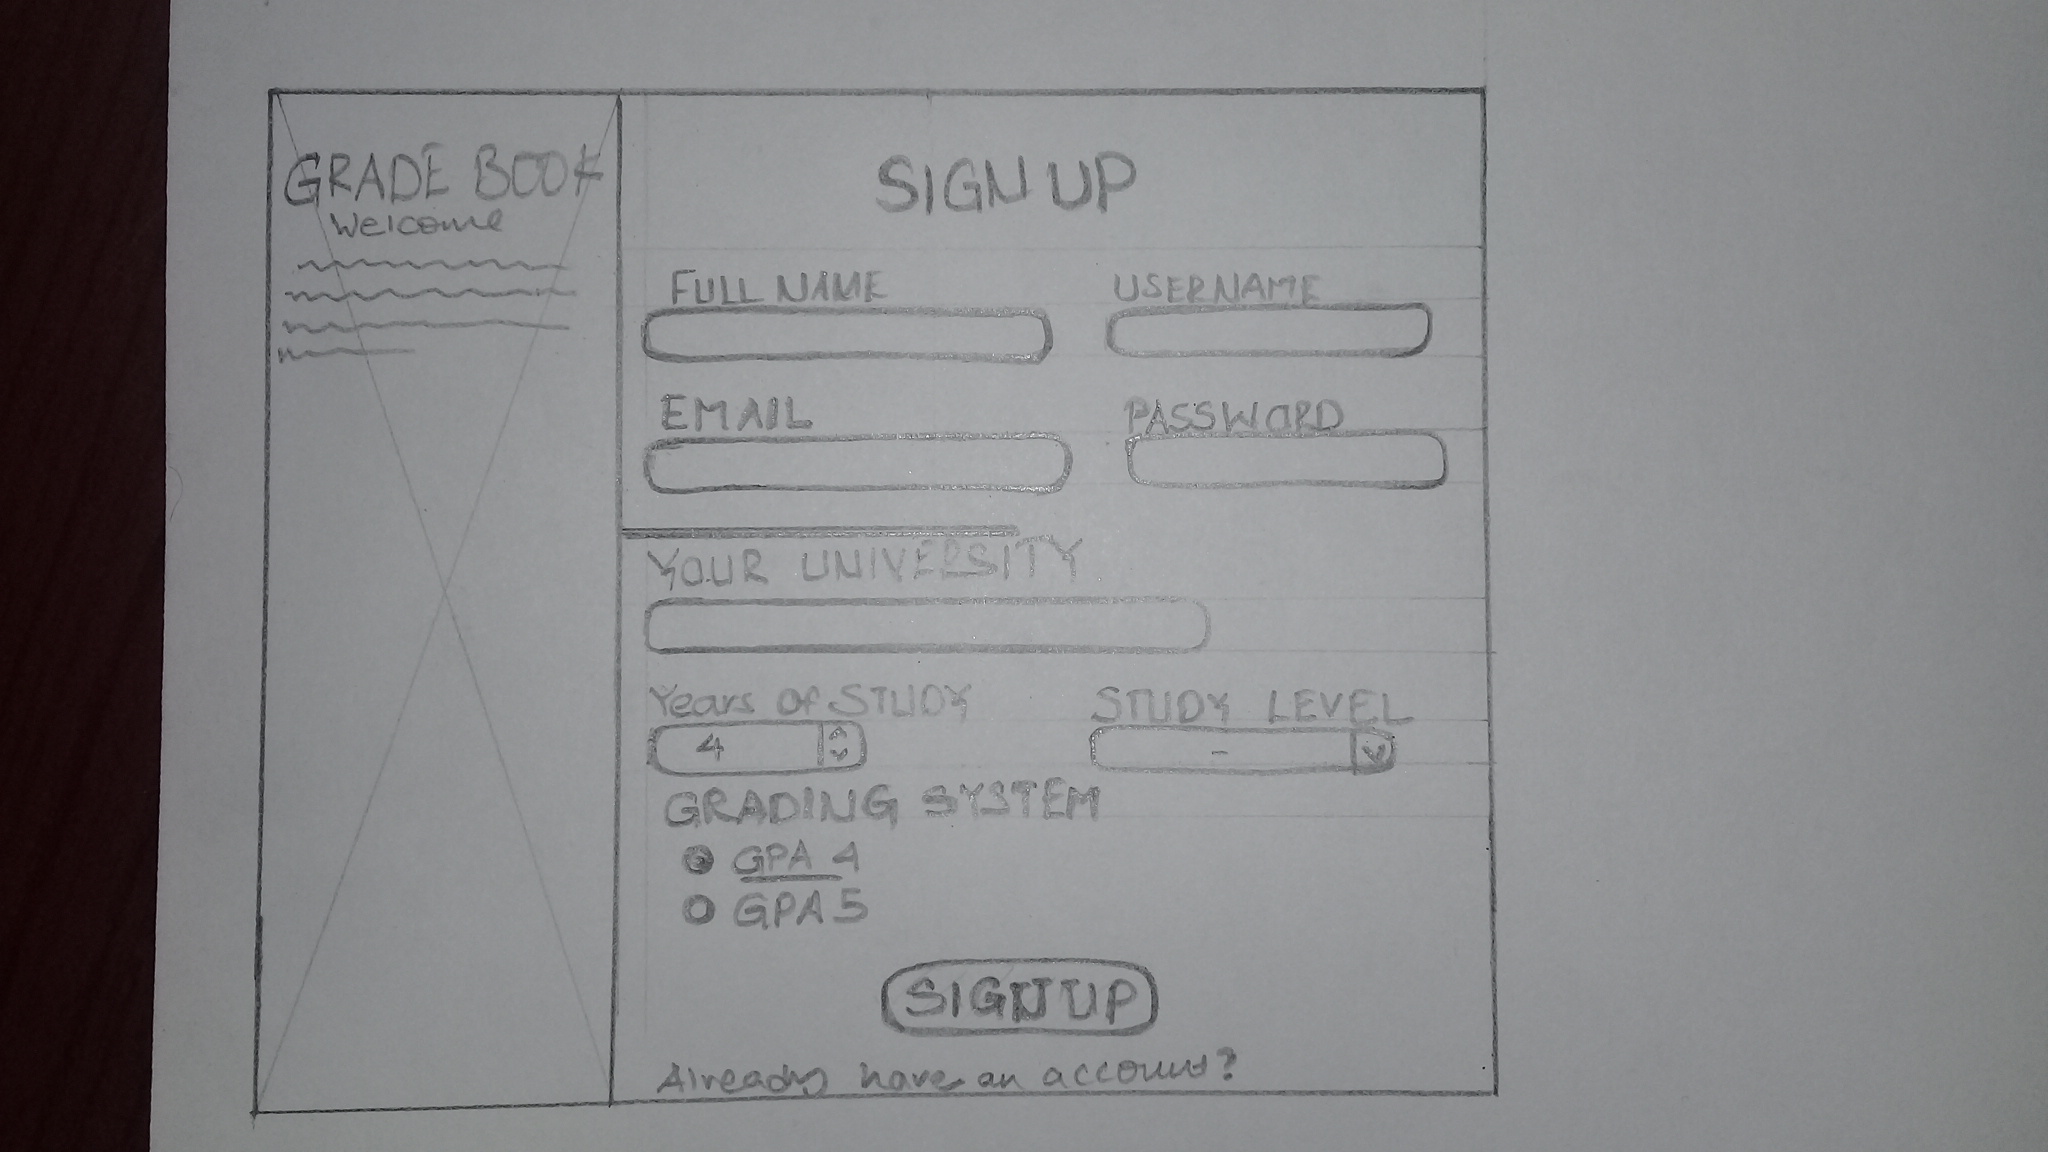 GRADE BOOK
Welcome
SIGN UP
FULL NAME
USERNAME
EMAIL
PASSWORD
YOUR UNIVERSITY
Years of STUDY
STUDY LEVEL
4
-
GRADING SYSTEM
GPA 4
GPA 5
SIGN UP
Already have an account?